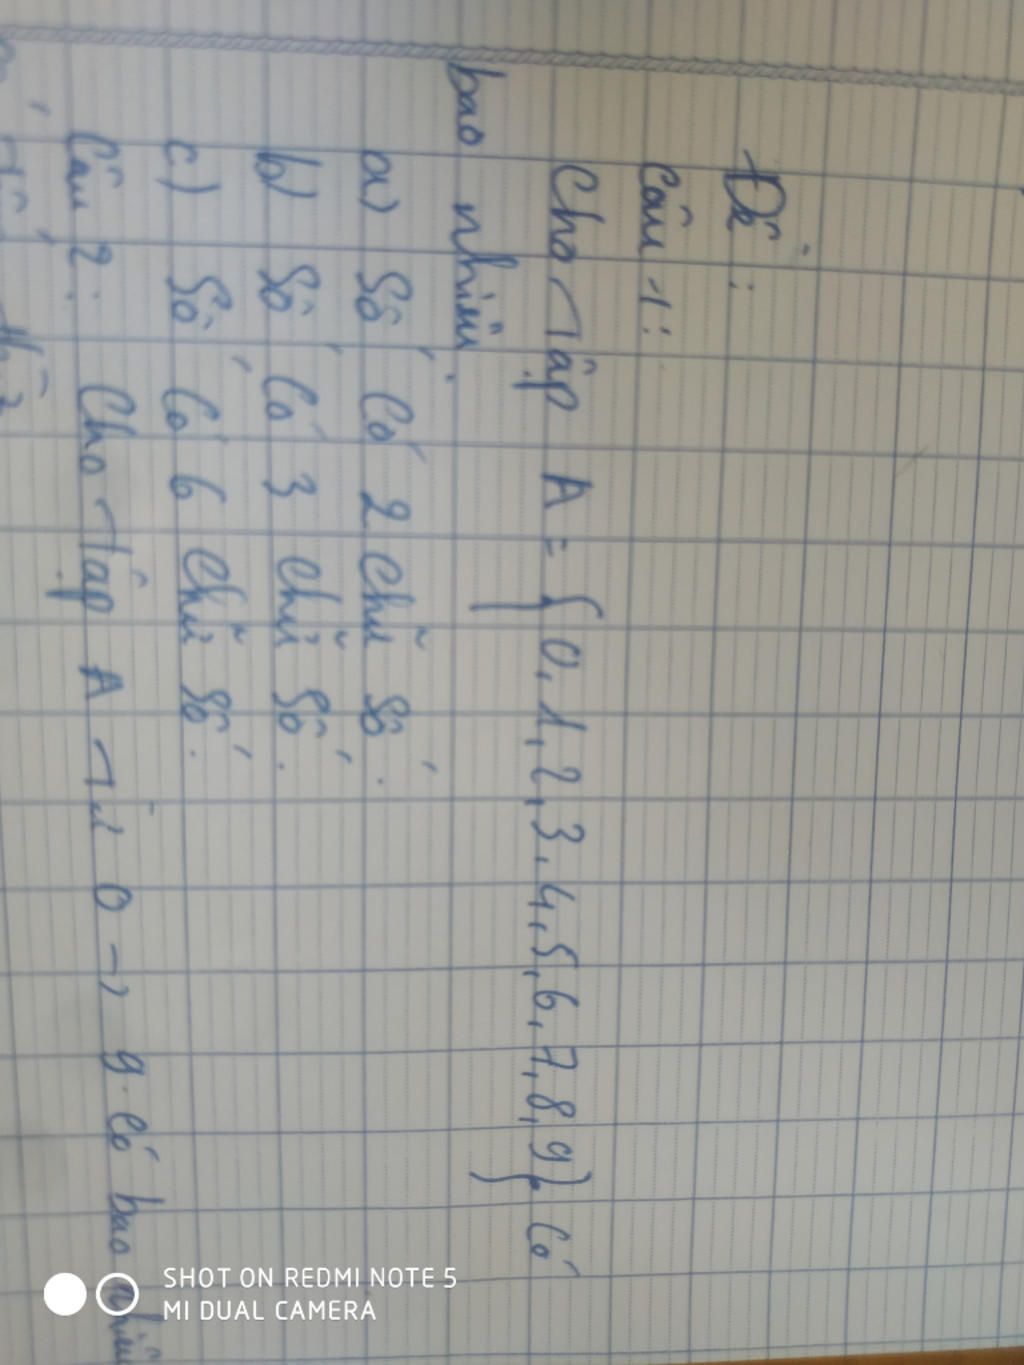 Đề:
Câu 1:
Cho tập A = { 0,1,2,3,4,5,6,7,8,9}. Có
bao nhiêu
a) Số có 2 chữ số.
b) Số có 3 chữ số.
c) Số có 6 chữ số.
Câu 2: Cho tập A từ 0 → 9. Có bao nhiêu
SHOT ON REDMI NOTE 5
MI DUAL CAMERA